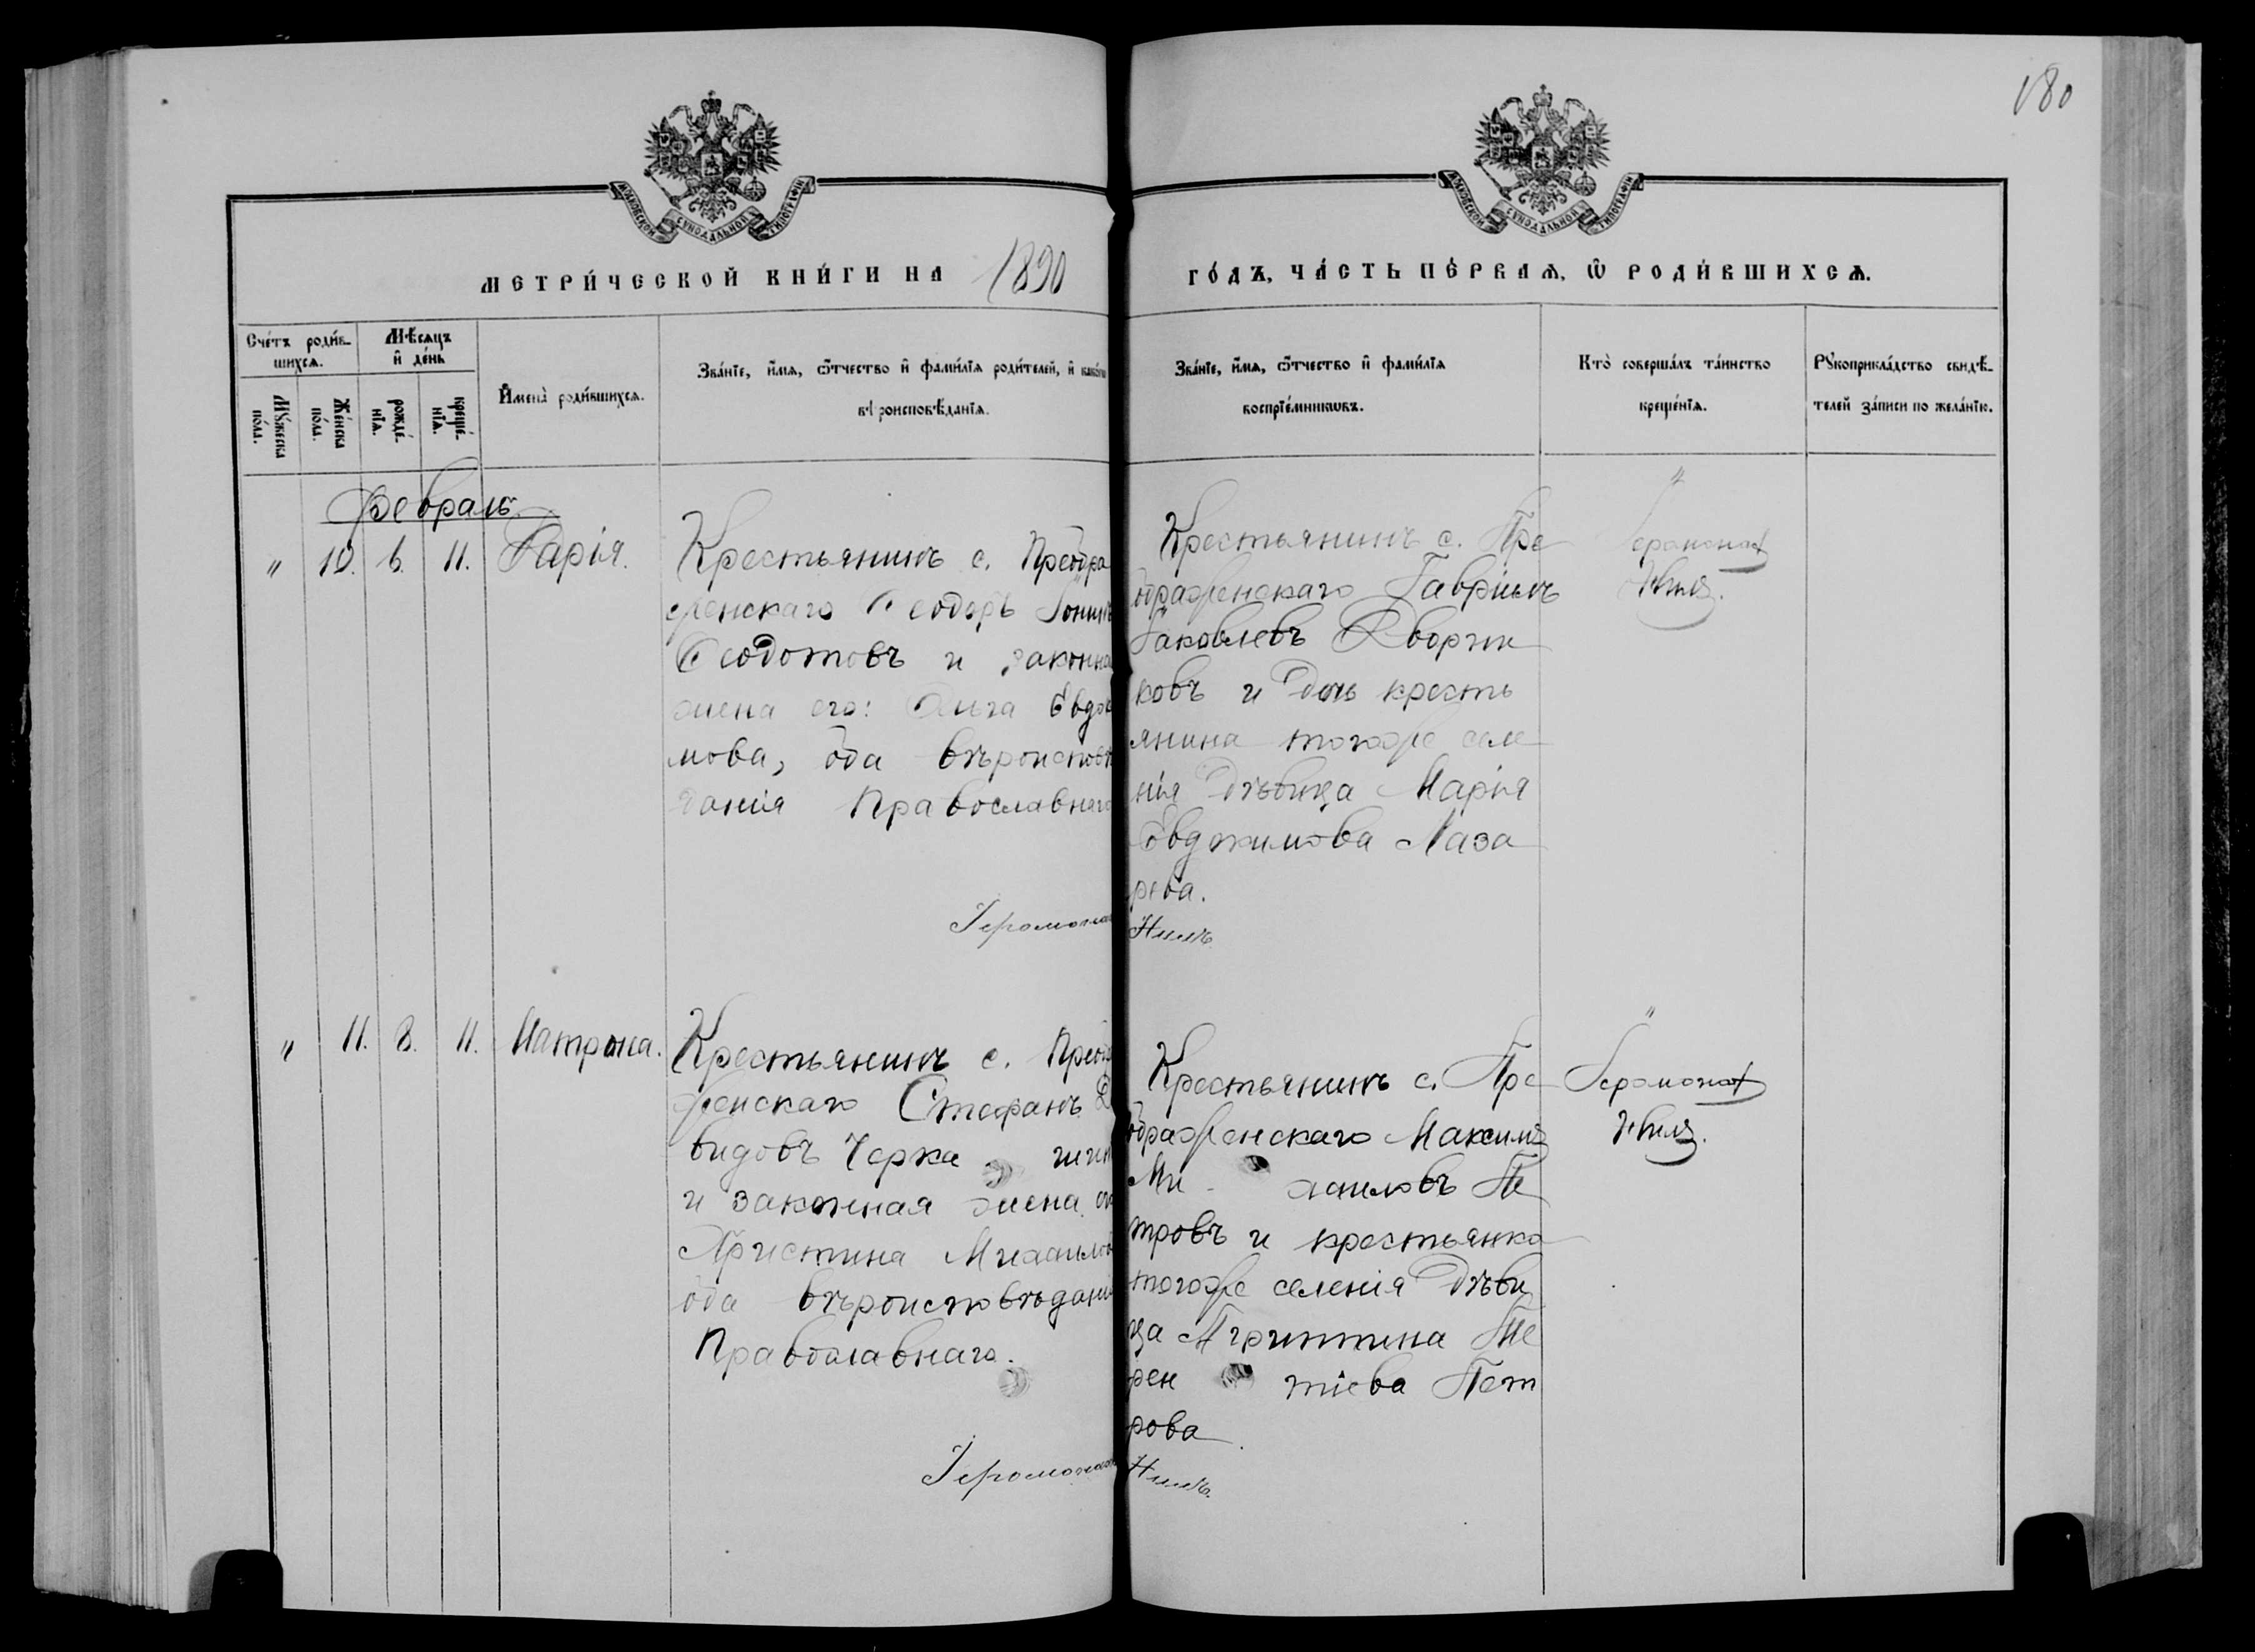 180
МОСКОВСКОЙ СѴНОДАЛЬНОЙ ТИПОГРАФІИ
МОСКОВСКОЙ СѴНОДАЛЬНОЙ ТИПОГРАФІИ
МЕТРИ́ЧЕСКОЙ КНИ́ГИ НА 1890
ГО́ДЪ, ЧА́СТЬ ПЕ́РВАѦ, Ѡ҆ РОДИ́ВШИХСѦ.
Сче́тъ роди́в-
шихсѧ.
Мѣ́сѧцъ
и҆ де́нь
Мꙋ́жеска
по́ла.
Же́нска
по́ла.
рожде́-
нїѧ.
креще́-
нїѧ.
И҆мена̀ роди́вшихсѧ.
Зва́нїе, и҆́мѧ, ѻ҆́тчество и҆ фами́лїѧ роди́телей, и҆
вѣроисповѣ́данїѧ.
Зва́нїе, и҆́мѧ, ѻ҆́тчество и҆ фами́лїѧ
воспрїе́мникѡвъ.
Кто̀ соверша́лъ та́инство
креще́нїѧ.
Рꙋкоприкла́дство свидѣ́-
телей за́писи по жела́нїю.
Февраль
" 10. 6. 11. Дарія.
Крестьянинъ с. Преобра
женскаго Ѳеодоръ
Ѳеодотовъ и законна
жена его: Ольга Евдо
мова, оба вѣроисповѣ
данія Православнаго
Іеромонах
Крестьянинъ с. Пре
ображенскаго Гавріилъ
Іаковлевъ Дворни
ковъ и дочь кресть
янина тогоже селе
нія дѣвица Марія
Евдокимова Лаза
рева.
Нилъ
"
Іеромонах
Нилъ.
" 11. 8. 11. Матрона.
Крестьянинъ с. Преоб
женскаго Стефанъ Д
видовъ Черка шин
и законная жена ег
Христина Михаилов
оба вѣроисповѣдані
Православнаго.
Іеромонах
Крестьянинъ с. Пре
ображенскаго Максимъ
Ми хаиловъ Пе
тровъ и крестьянка
тогоже селенія дѣви
ца Агриппина Те
рен тіева Пет
рова.
Нилъ.
"
Іеромонах
Нилъ.